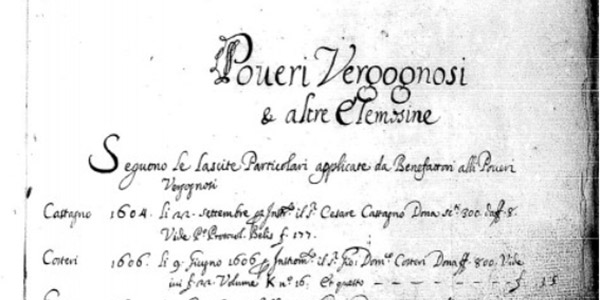 Poueri Vergognosi
& altre Elemosine
Seguono le lascite Particolari applicate da Benefattori alli Poueri
Vergognosi
Castagno 1604. li 22. settembre p Instro. il Sr. Cesare Castagno Dona 300.
Vide Prothocol. f. 177.
Costeri 1606. li 9. Giugno 1606 p Instrom. il Sr. Gio: Domco. Costeri Dona 800. Vide
f. 22 Volume K no. 16. Et questo